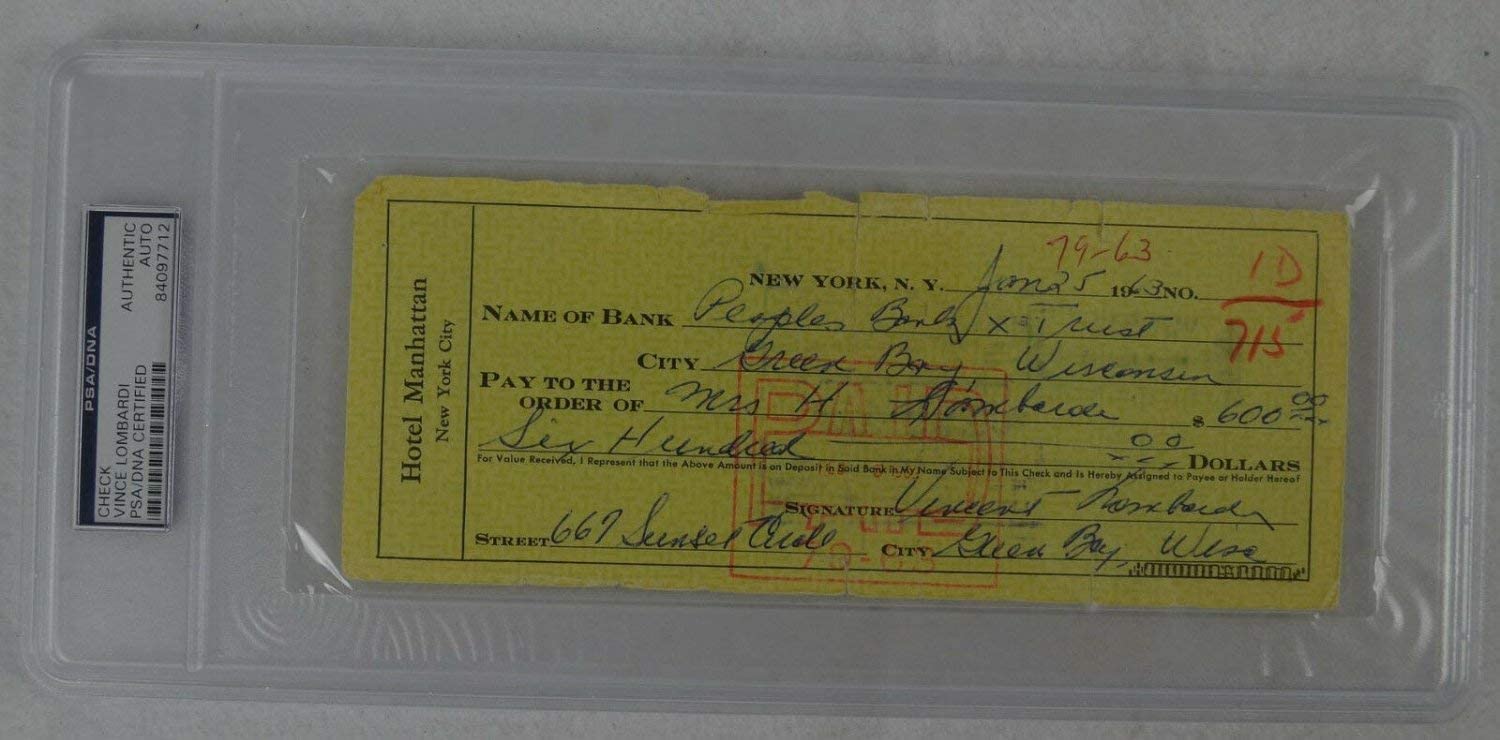 PSA/DNA
CHECK AUTHENTIC
VINCE LOMBARDI AUTO
PSA/DNA CERTIFIED 84097712
Hotel Manhattan
New York City
79-63
1D
NEW YORK, N. Y. Jan 25 1963 NO.
715
NAME OF BANK Peoples Bank & Trust
CITY Green Bay, Wisconsin
PAY TO THE
ORDER OF Mrs H Lombardi $ 600 00
Six Hundred 00 DOLLARS
For Value Received, I Represent that the Above Amount is on Deposit in Said Bank in My Name Subject to This Check and is Hereby Assigned to Payee or Holder Hereof
SIGNATURE Vincent Lombardi
STREET 667 Sunset Circle CITY Green Bay, Wisc
PAID